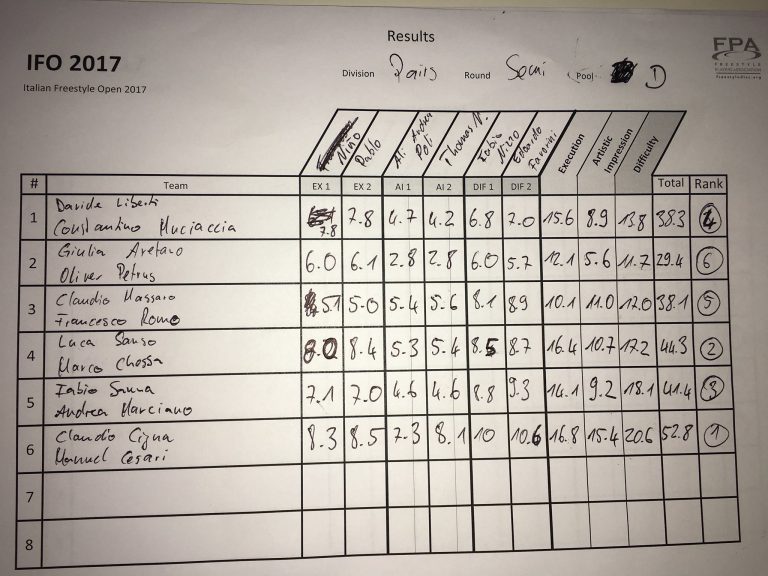 Results
IFO 2017
Italian Freestyle Open 2017
Division Pairs Round Semi Pool D
FPA
FREESTYLE
PLAYERS ASSOCIATION
freestyledisc.org
Nino Pablo Ali Andrea Poli Thomas N. Fabio Nizzo Edoardo Execution Artistic Impression Difficulty
# Team EX 1 EX 2 AI 1 AI 2 DIF 1 DIF 2 Total Rank
1 Davide Liberti
Constantino Muciaccia 7.8 7.8 4.7 4.2 6.8 7.0 15.6 8.9 13.8 38.3 4
2 Giulia Avetaro
Oliver Petrus 6.0 6.1 2.8 2.8 6.0 5.7 12.1 5.6 11.7 29.4 6
3 Claudio Massaro
Francesco Romo 5.1 5.0 5.4 5.6 8.1 8.9 10.1 11.0 17.0 38.1 5
4 Luca Sanso
Marco Chessa 8.0 8.4 5.3 5.4 8.5 8.7 16.4 10.7 17.2 44.3 2
5 Fabio Sanna
Andrea Marciano 7.1 7.0 4.6 4.6 8.8 9.3 14.1 9.2 18.1 41.4 3
6 Claudio Cigna
Manuel Cesari 8.3 8.5 7.3 8.1 10 10.6 16.8 15.4 20.6 52.8 1
7
8